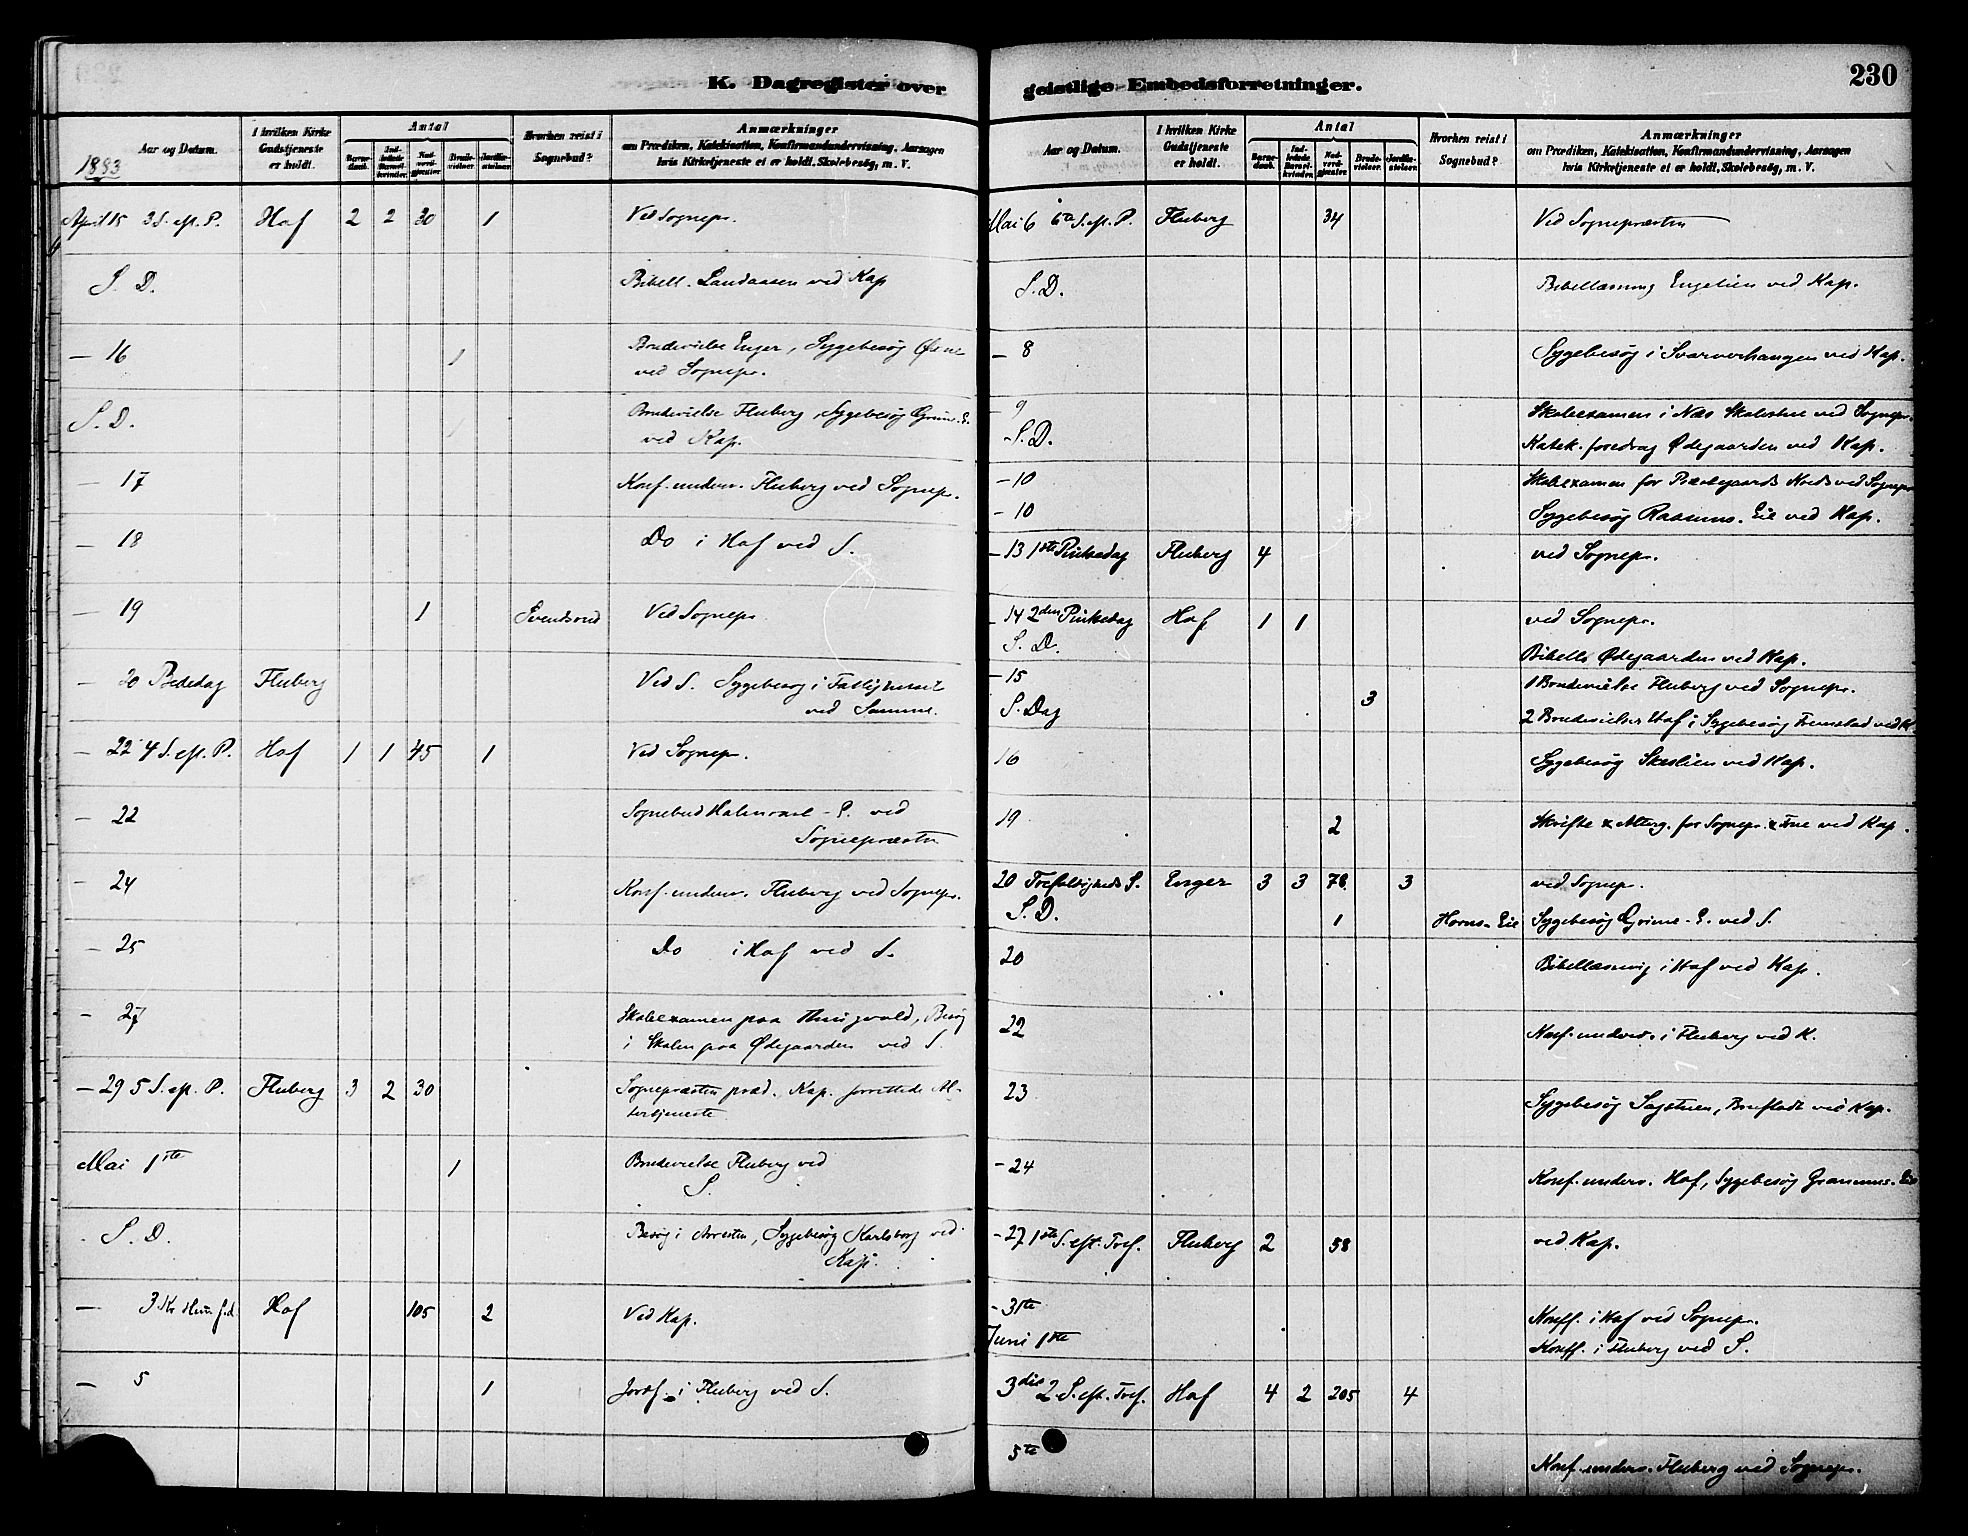 K. Dagregister over
Aar og Datum.
1883
I hvilken Kirke
Gudstjeneste
er holdt.
Antal
Barne-
daab.
Ind-
ledede
Barsel-
kvinder.
Nad-
verd-
gjæster.
Brude-
vielser.
Jordfæ-
stelser.
Hvorhen reist i
Sognebud?
Anmærkninger
om Prædiken, Katekisation, Konfirmandundervisning, Aarsagen
hvis Kirketjeneste ei er holdt, Skolebesøg, m. V.
April 15 3 S. eft. P. Hof 2 2 30 1 Ved Sognepr.
S. D. Bibell. Landaasen ved Kap
— 16 1 Brudevielse Enger, Sygebesøg
ved Sognepr.
S. D. Brudevielse Fluberg, Sygebesøg Grime-E.
ved Kap.
— 17 Konf. underv. Fluberg ved Sognepr.
— 18 Do i Hof ved S.
— 19 1 Svendsrud Ved Sognepr
— 20 Bededag Fluberg Ved S. Sygebesøg i Fattighuset
ved Samme.
— 22 4 S. eft. P. Hof 1 1 45 1 Ved Sognepr.
— 22 Sognebud E. ved
Sognepræsten
— 24 Konf. underv. Fluberg ved Sognepr.
— 25 Do i Hof ved S.
— 27 Skoleexamen paa Besøg
i Skolen paa Ødegaarden ved S.
— 29 5 S. eft. P. Fluberg 3 2 30 Sognepræsten præd. Kap. forrettede Al-
tertjeneste
Mai 1ste 1 Brudevielse Fluberg ved
S.
S. D. Besøg i Arresten, Sygebesøg Karlsborg ved
Kap.
— 3 Kr. Him. f. d. Hof 105 2 Ved Kap.
— 5 1 Jordf. i Fluberg ved S.
geistlige Embedsforretninger.
230
Aar og Datum.
I hvilken Kirke
Gudstjeneste
er holdt.
Antal
Barne-
daab.
Ind-
ledede
Barsel-
kvinder.
Nad-
verd-
gjæster.
Brude-
vielser.
Jordfæ-
stelser.
Hvorhen reist i
Sognebud?
Anmærkninger
om Prædiken, Katekisation, Konfirmandundervisning, Aarsagen
hvis Kirketjeneste ei er holdt, Skolebesøg, m. V.
Mai 6 6te S. eft. P. Fluberg 34 Ved Sognepræsten
S. D. Bibellæsning Engelien ved Kap.
— 8 Sygebesøg i Svarverhaugen ved Kap.
— 9 Skoleexamen i Næs Skolestue ved Sognepr.
S. D. Katek. foredrag Ødegaarden ved Kap.
— 10 Skolexamen for Præstegaards Kreds ved Sognepr
— 10 Sygebesøg Eie ved Kap.
— 13 1ste Pinksedag Fluberg 4 ved Sognepr.
— 14 2den Pinksedag Hof 1 1 ved Sognepr.
S. D. Bibells Ødegaarden ved Kap.
— 15 1 Brudevielse Fluberg ved Sognepr.
S. Dag 3 2 Brudevielser Hof; Sygebesøg ved K.
16 Sygebesøg ved Kap.
19 2 Skrifte & Alterg. for Sognepr. & Frue ved Kap.
20 Trefoldigheds S. Enger 3 3 78 3 ved Sognepr.
S. D. 1 Horns-Eie Sygebesøg Grime-E. ved S.
20 Bibellæsning i Hof ved Kap.
22 Konf. underv. i Fluberg ved K.
23 Sygebesøg Sagstuen, ved Kap.
— 24 Konf. underv. Hof, Sygebesøg Eie
— 27 1ste S. eft. Tref. Fluberg 2 58 ved Kap.
— 31te Konff. i Hof ved Sognepr.
Juni 1ste Konff. i Fluberg ved S.
3die 2 S. eft. Tref. Hof 4 2 205 4
5te Konf. underv. Fluberg ved Sognepr.